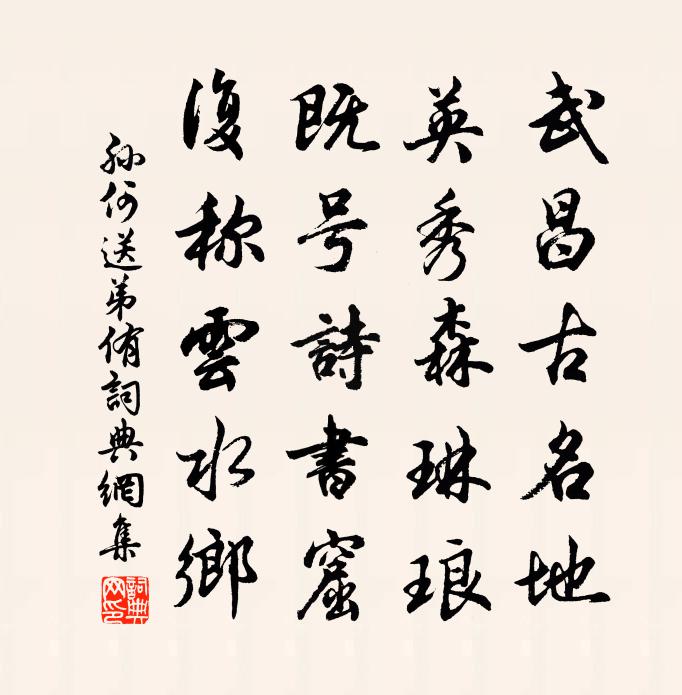 武昌古名地
英秀森琳琅
既号詩書窟
復称雲水鄉
孙何送弟侑詞典網集
詞典网印